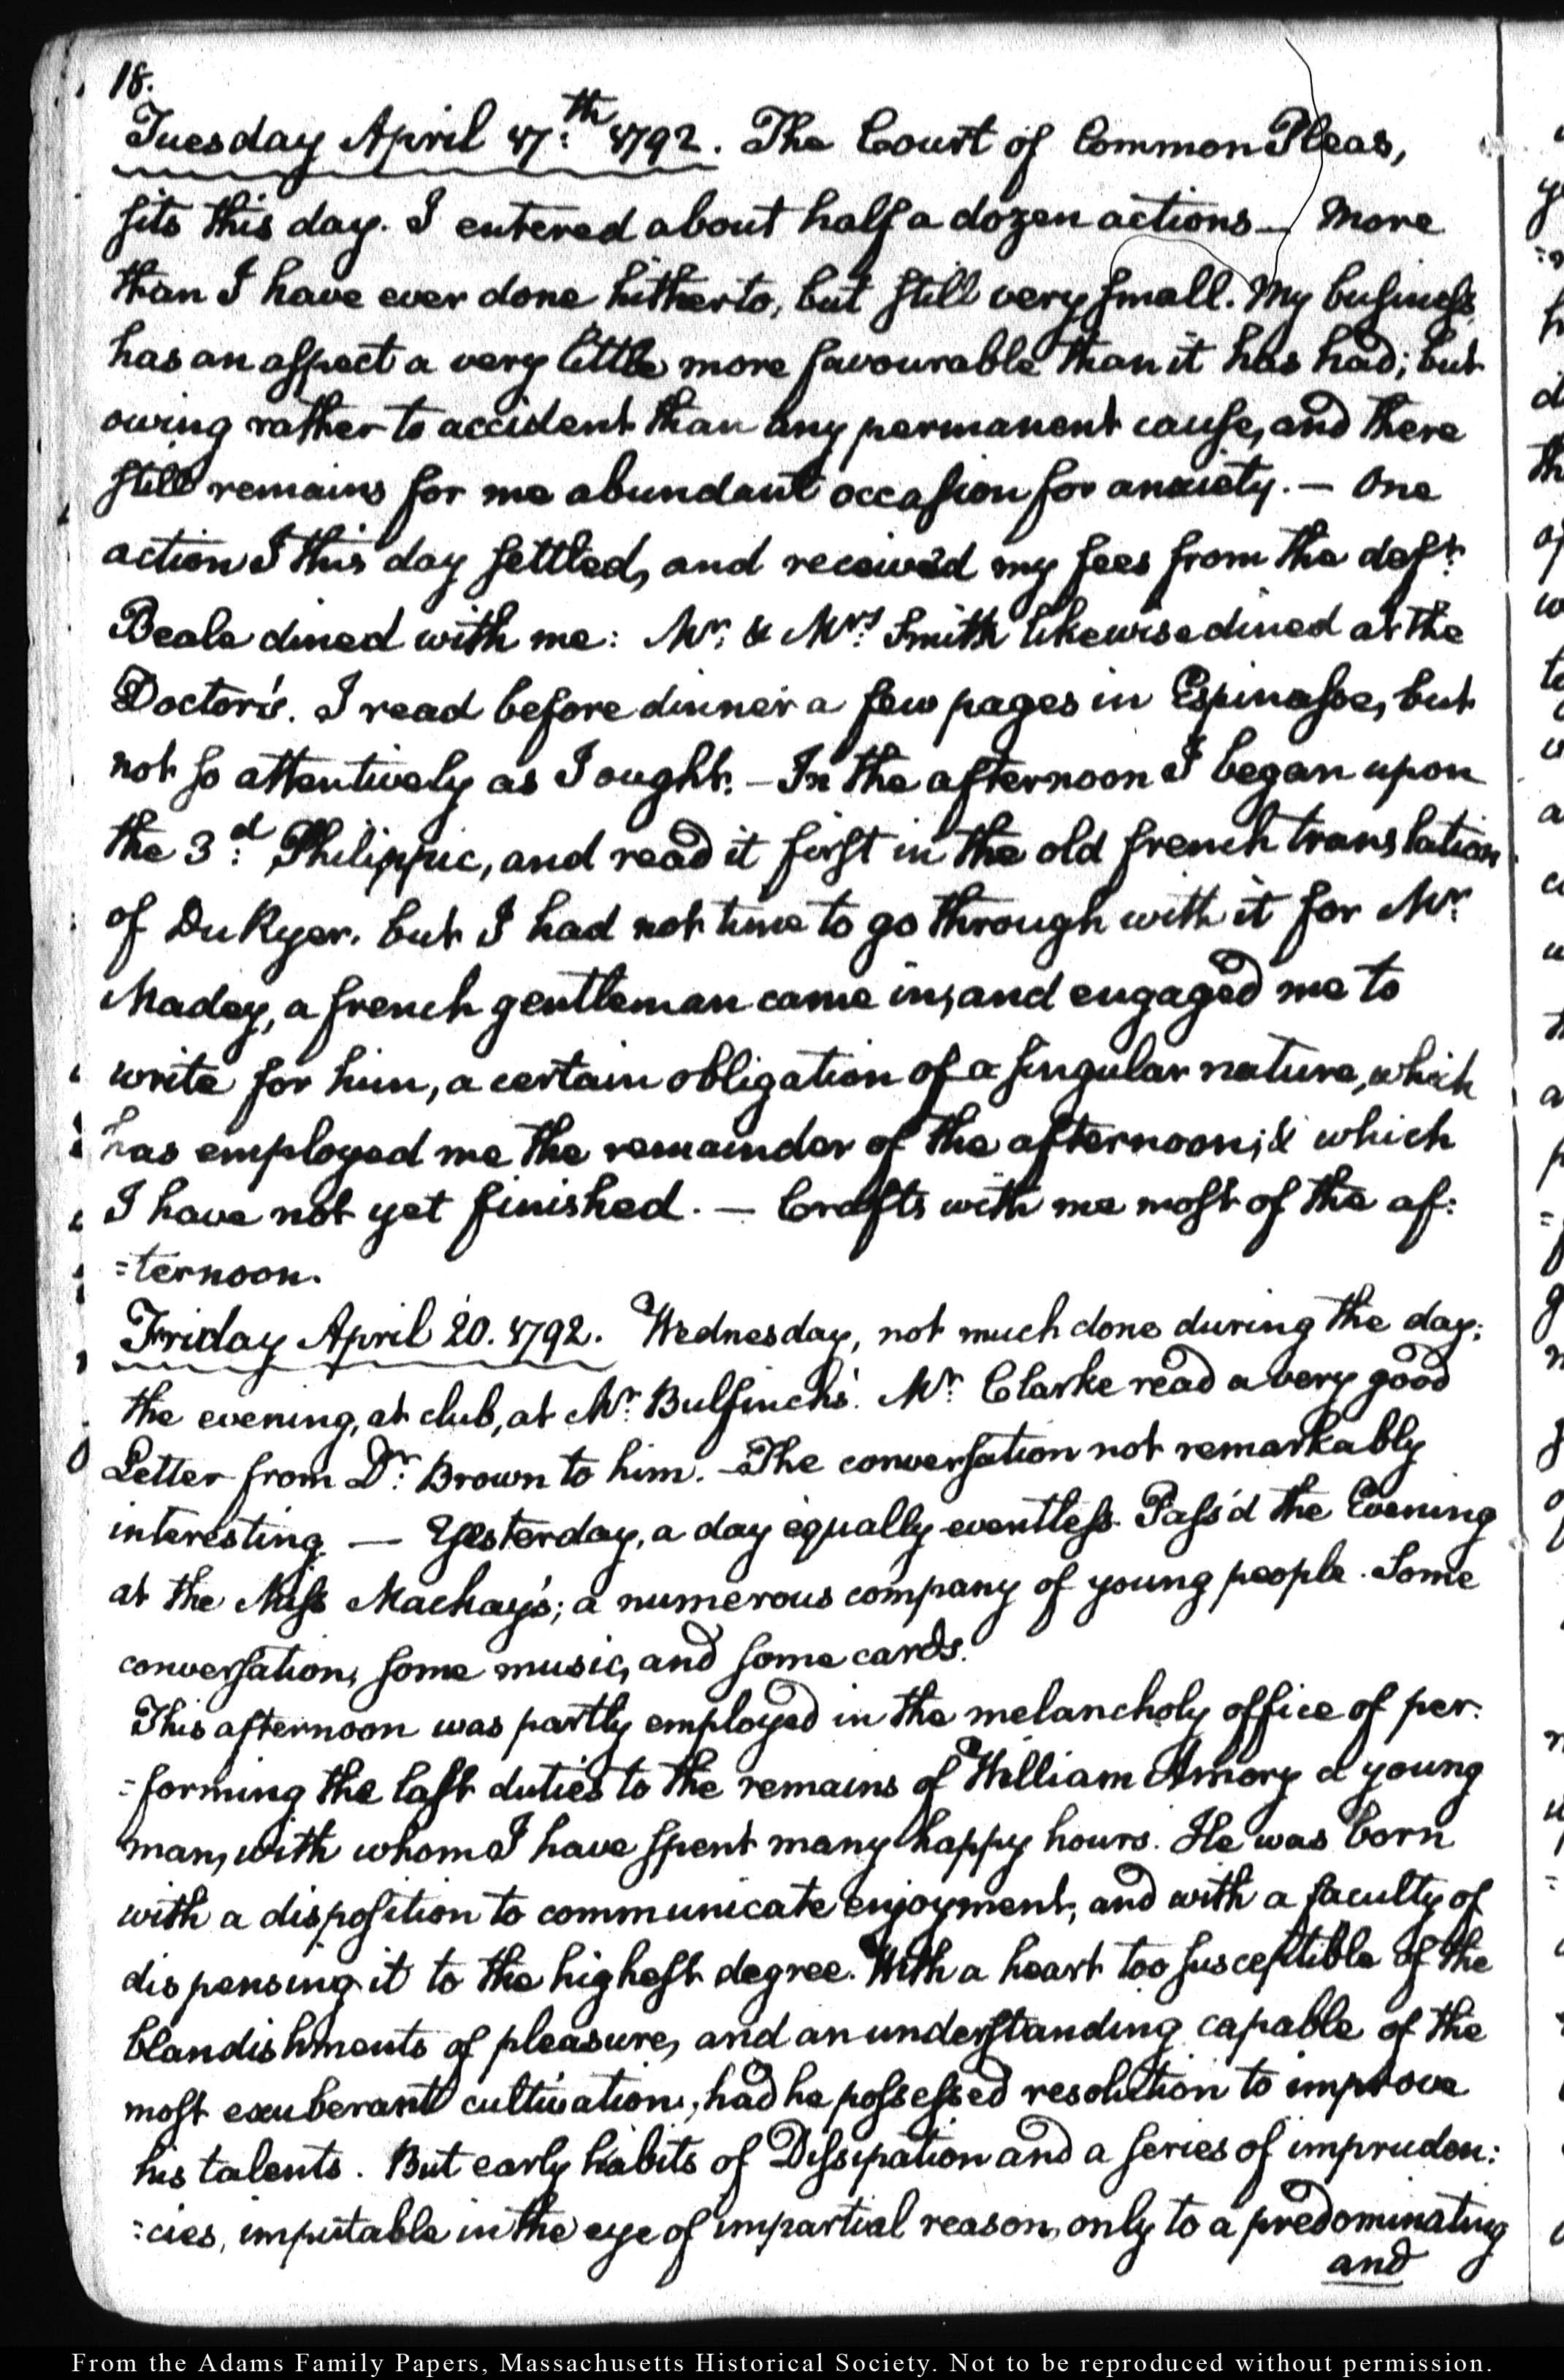 18.
Tuesday April 17.th 1792. The Court of Common Pleas,
sits this day. I entered about half a dozen actions — More
than I have ever done hitherto, but still very small. My business
has an aspect a very little more favourable than it has had; but
owing rather to accident than any permanent cause, and there
still remains for me abundant occasion for anxiety. — One
action I this day settled, and receiv'd my fees from the deft.
Beale dined with me: Mr. & Mrs. Smith likewise dined at the
Doctor's. I read before dinner a few pages in Espinasse, but
not so attentively as I ought. — In the afternoon I began upon
the 3.d Philippic, and read it first in the old french translation
of Du Ryer. but I had not time to go through with it for Mr.
Madey, a french gentleman came in, and engaged me to
write for him, a certain obligation of a singular nature, which
has employed me the remainder of the afternoon; & which
I have not yet finished. — Crafts with me most of the af:
=ternoon.
Friday April 20. 1792. Wednesday, not much done during the day;
the evening, at club, at Mr. Bulfinch's. Mr. Clarke read a very good
Letter from Dr. Brown to him. — The conversation not remarkably
interesting. — Yesterday, a day equally eventless. Pass'd the Evening
at the Miss Mackay's; a numerous company of young people. Some
conversation, some music, and some cards.
This afternoon was partly employed in the melancholy office of per:
=forming the last duties to the remains of William Amory a young
man, with whom I have spent many happy hours. He was born
with a disposition to communicate enjoyment, and with a faculty of
dispensing it to the highest degree. With a heart too susceptible of the
blandishments of pleasure, and an understanding capable of the
most exuberant cultivation, had he possessed resolution to improve
his talents. But early habits of Dissipation and a series of impruden:
=cies, imputable in the eye of impartial reason, only to a predominating
and
From the Adams Family Papers, Massachusetts Historical Society. Not to be reproduced without permission.